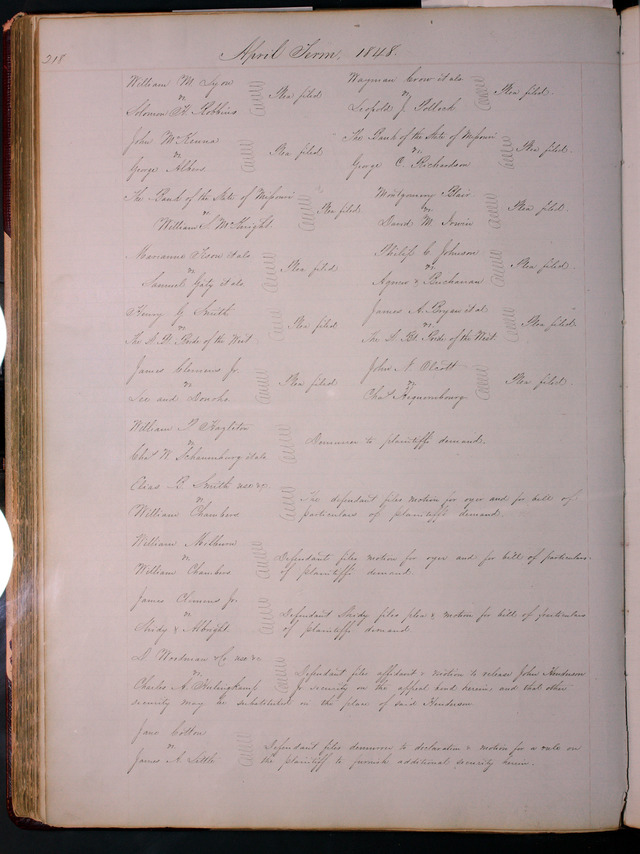 218
April Term, 1848.
William M Lyon
vs
Solomon H Robbins
Plea filed
Wayman Crow et als
vs
Leopold J. Pollock
Plea filed.
John McKenna
vs
George Albers
Plea filed
The Bank of the State of Missouri
vs
George C. Richardson
Plea filed.
The Bank of the State of Missouri
vs
William S. McKnight
Plea filed
Montgomery Blair
vs
David M. Irwin
Plea filed.
Marianne et als
vs
Samuel Gaty et als
Plea filed
Philip C Johnson
vs
Agnew & Buchanan
Plea filed.
Henry G Smith
vs
The S. B. Pride of the West
Plea filed
James A. Bryan et al
vs
The S. Bt. Pride of the West
Plea filed.
James Clemens Jr
vs
Lee and Donoho
Plea filed
John N. Olcott
vs
Chas
Plea filed.
William T.
vs
Chas W Schaumburg et als
Demurrer to plaintiffs demand.
Elias B. Smith use &c
vs
William Chambers
The defendant files motion for oyer and for bill of
particulars of plaintiffs demand.
William Milburn
vs
William Chambers
Defendants files motion for oyer and for bill of particulars
of plaintiffs demand.
James Clemens Jr.
vs
& Albright
Defendant files plea & motion for bill of particulars
of plaintiffs demand
D. Woodman & Co use &c
vs
Charles A.
Defendant files affidavit & motion to release John
as security on the appeal bond herein and that other
security may be substituted in the place of said
Jane Cotton
vs
James A. Little
Defendant files demurrer to declaration & motion for a rule on
the plaintiff to furnish additional security herein.